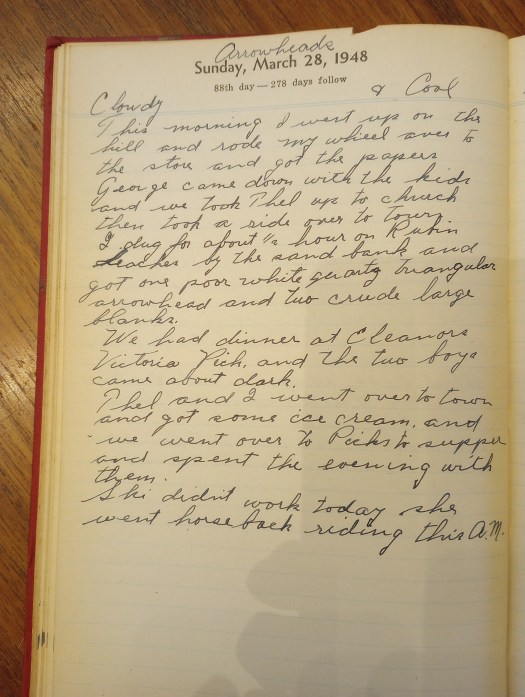 Arrowheads
Sunday, March 28, 1948
88th day — 278 days follow
Clowdy & Cool
This morning I went up on the
hill and rode my wheel over to
the store and got the papers
George came down with the kids
and we took Thel up to church
then took a ride over to town.
I dug for about ½ hour on Rubin
by the sand bank and
got one poor white quartz triangular
arrowhead and two crude large
blanks.
We had dinner at Eleanors
Victoria Pick, and the two boys
came about dark.
Thel and I went over to town
and got some ice cream, and
we went over to Picks to supper
and spent the evening with
them.
Ski didn't work today she
went horseback riding this A.M.